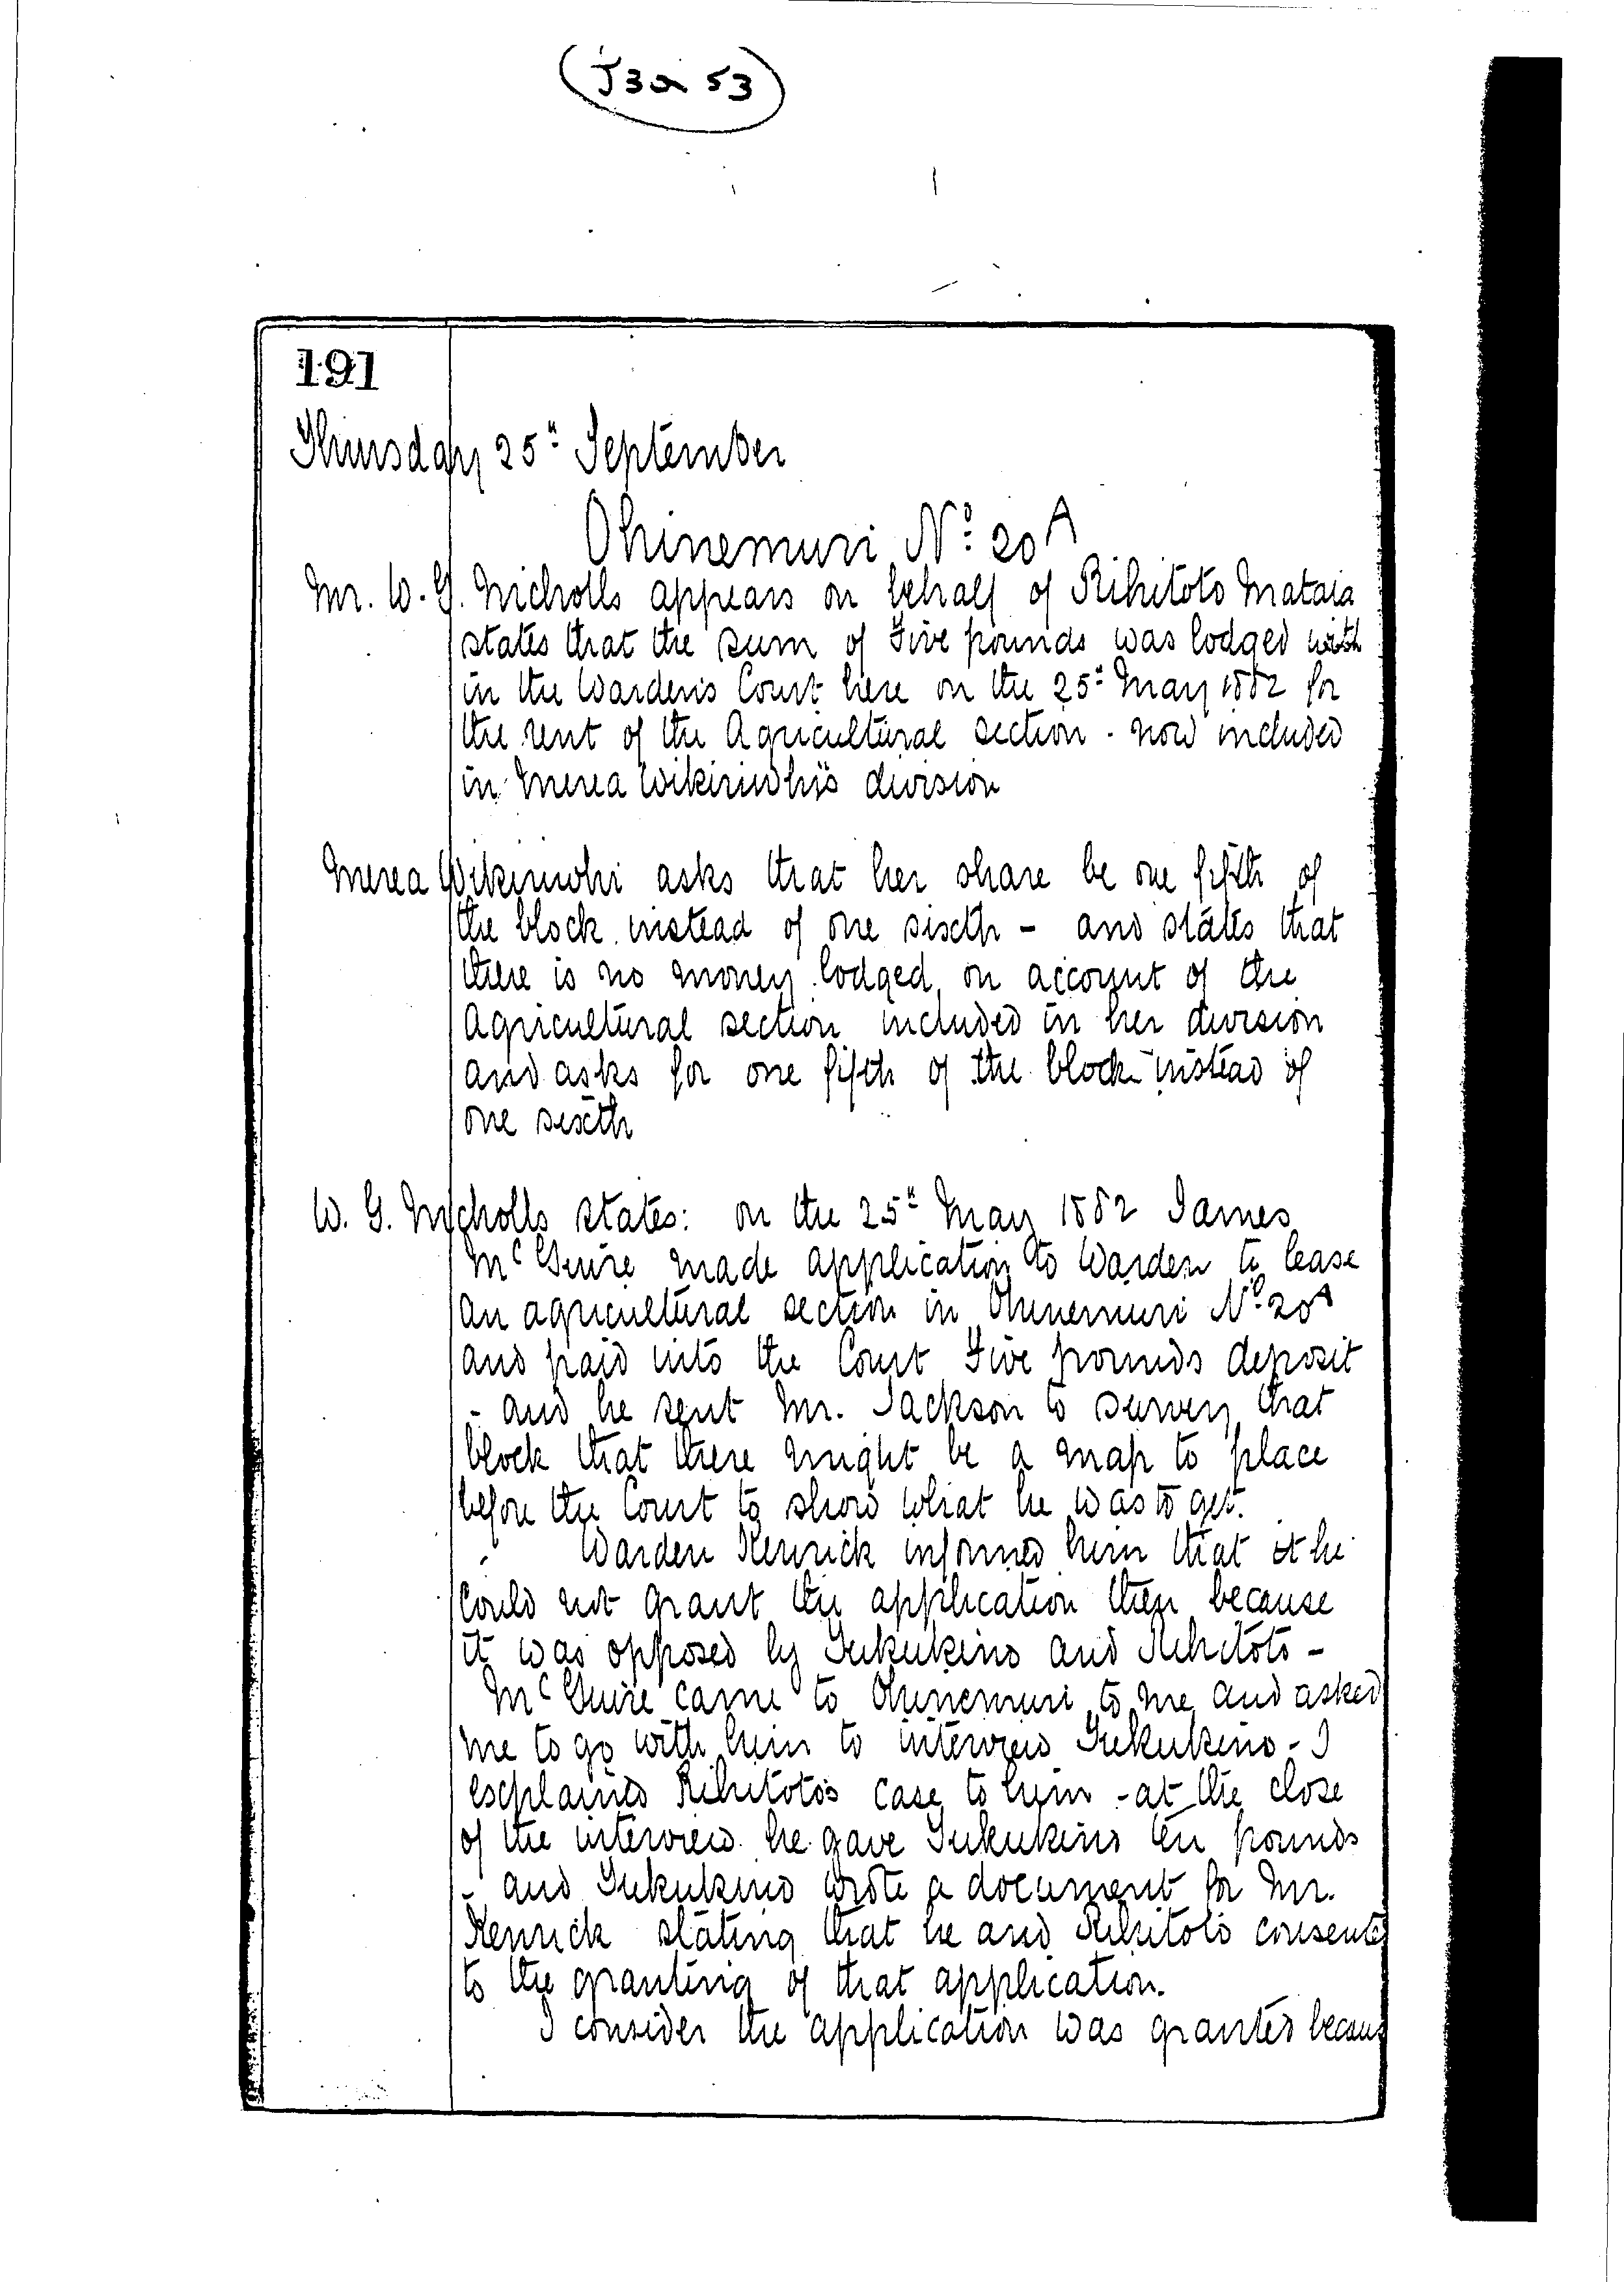 (J3a 53)
191
Thursday 25th September
Ohinemuri No 20A
Mr. W. G. Nicholls appears on behalf of Rihitoto Mataia
states that the sum of Five pounds was lodged with
in the Warden's Court here on the 25th May 1882 for
the rent of the Agricultural section - now included
in Merea Wikiriwhi's division
Merea Wikiriwhi asks that her share be one fifth of
the block instead of one sixth - and states that
there is no money lodged on account of the
Agricultural section included in her division
and asks for one fifth of the block instead of
one sixth
W. G. Nicholls states: on the 25th May 1882 James
McGuire made application to Warden to lease
an agricultural section in Ohinemuri No 20A
and paid into the Court Five pounds deposit
- and he sent Mr. Jackson to survey that
block that there might be a map to place
before the Court to show what he was to get.
Warden Kenrick informed him that it he
could not grant the application then because
it was opposed by Tukukino and Rihitoto -
McGuire came to Ohinemuri to me and asked
me to go with him to interview Tukukino - I
explained Rihitoto's case to him - at the close
of the interview he gave Tukukino ten pounds
- and Tukukino wrote a document for Mr.
Kenrick stating that he and Rihitoto consented
to the granting of that application.
I consider the application was granted becaus